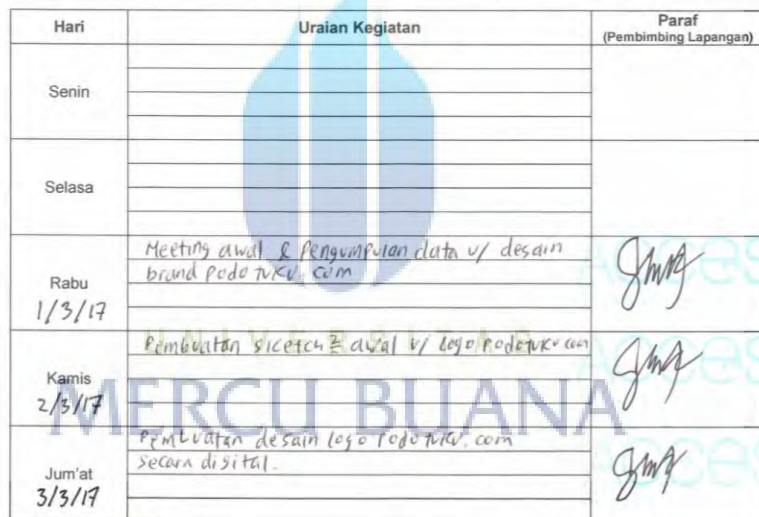 Hari Uraian Kegiatan Paraf
(Pembimbing Lapangan)
Senin
Selasa
Rabu
1/3/17
Meeting awal & Pengumpulan data u/ desain
brand Podotuku.com
Kamis
2/3/17
Pembuatan sketch2 awal u/ logo Podotuku.com
Jum'at
3/3/17
Pembuatan desain logo Podotuku.com
secara digital.
UNIVERSITAS
MERCU BUANA
Acces
Acces
Acces